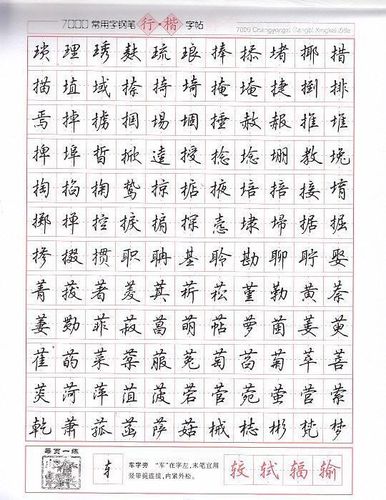 7000 常用字钢笔 行·楷 字帖
琐理琇麸琉琅捧掭堵揶措
描埴域捺掎埼掩埯捷捯排
焉掉掳掴埸堌捶赦赧推堆
捭埠晢掀逵授捻埝堋教堍
掏掐掬鸷掠掂掖培掊接堉
掷掸控捩掮探悫埭埽据掘
掺掇掼职聃基聆勘聊聍娶
菁菝著菱萁菥菘堇勒黄萘
萋勚菲菽菖萌帖萝菌萎萸
萑菂菜棻菔菟萄菊萃菩
菼菏萍菹菠菪菅菀萤营萦
乾萧菰菡萨菇械梽彬梵梦
每页一练
车
车字旁 “车”在字左，末笔宜用
竖带挑连接，内紧外松。
较 轼 辐 输